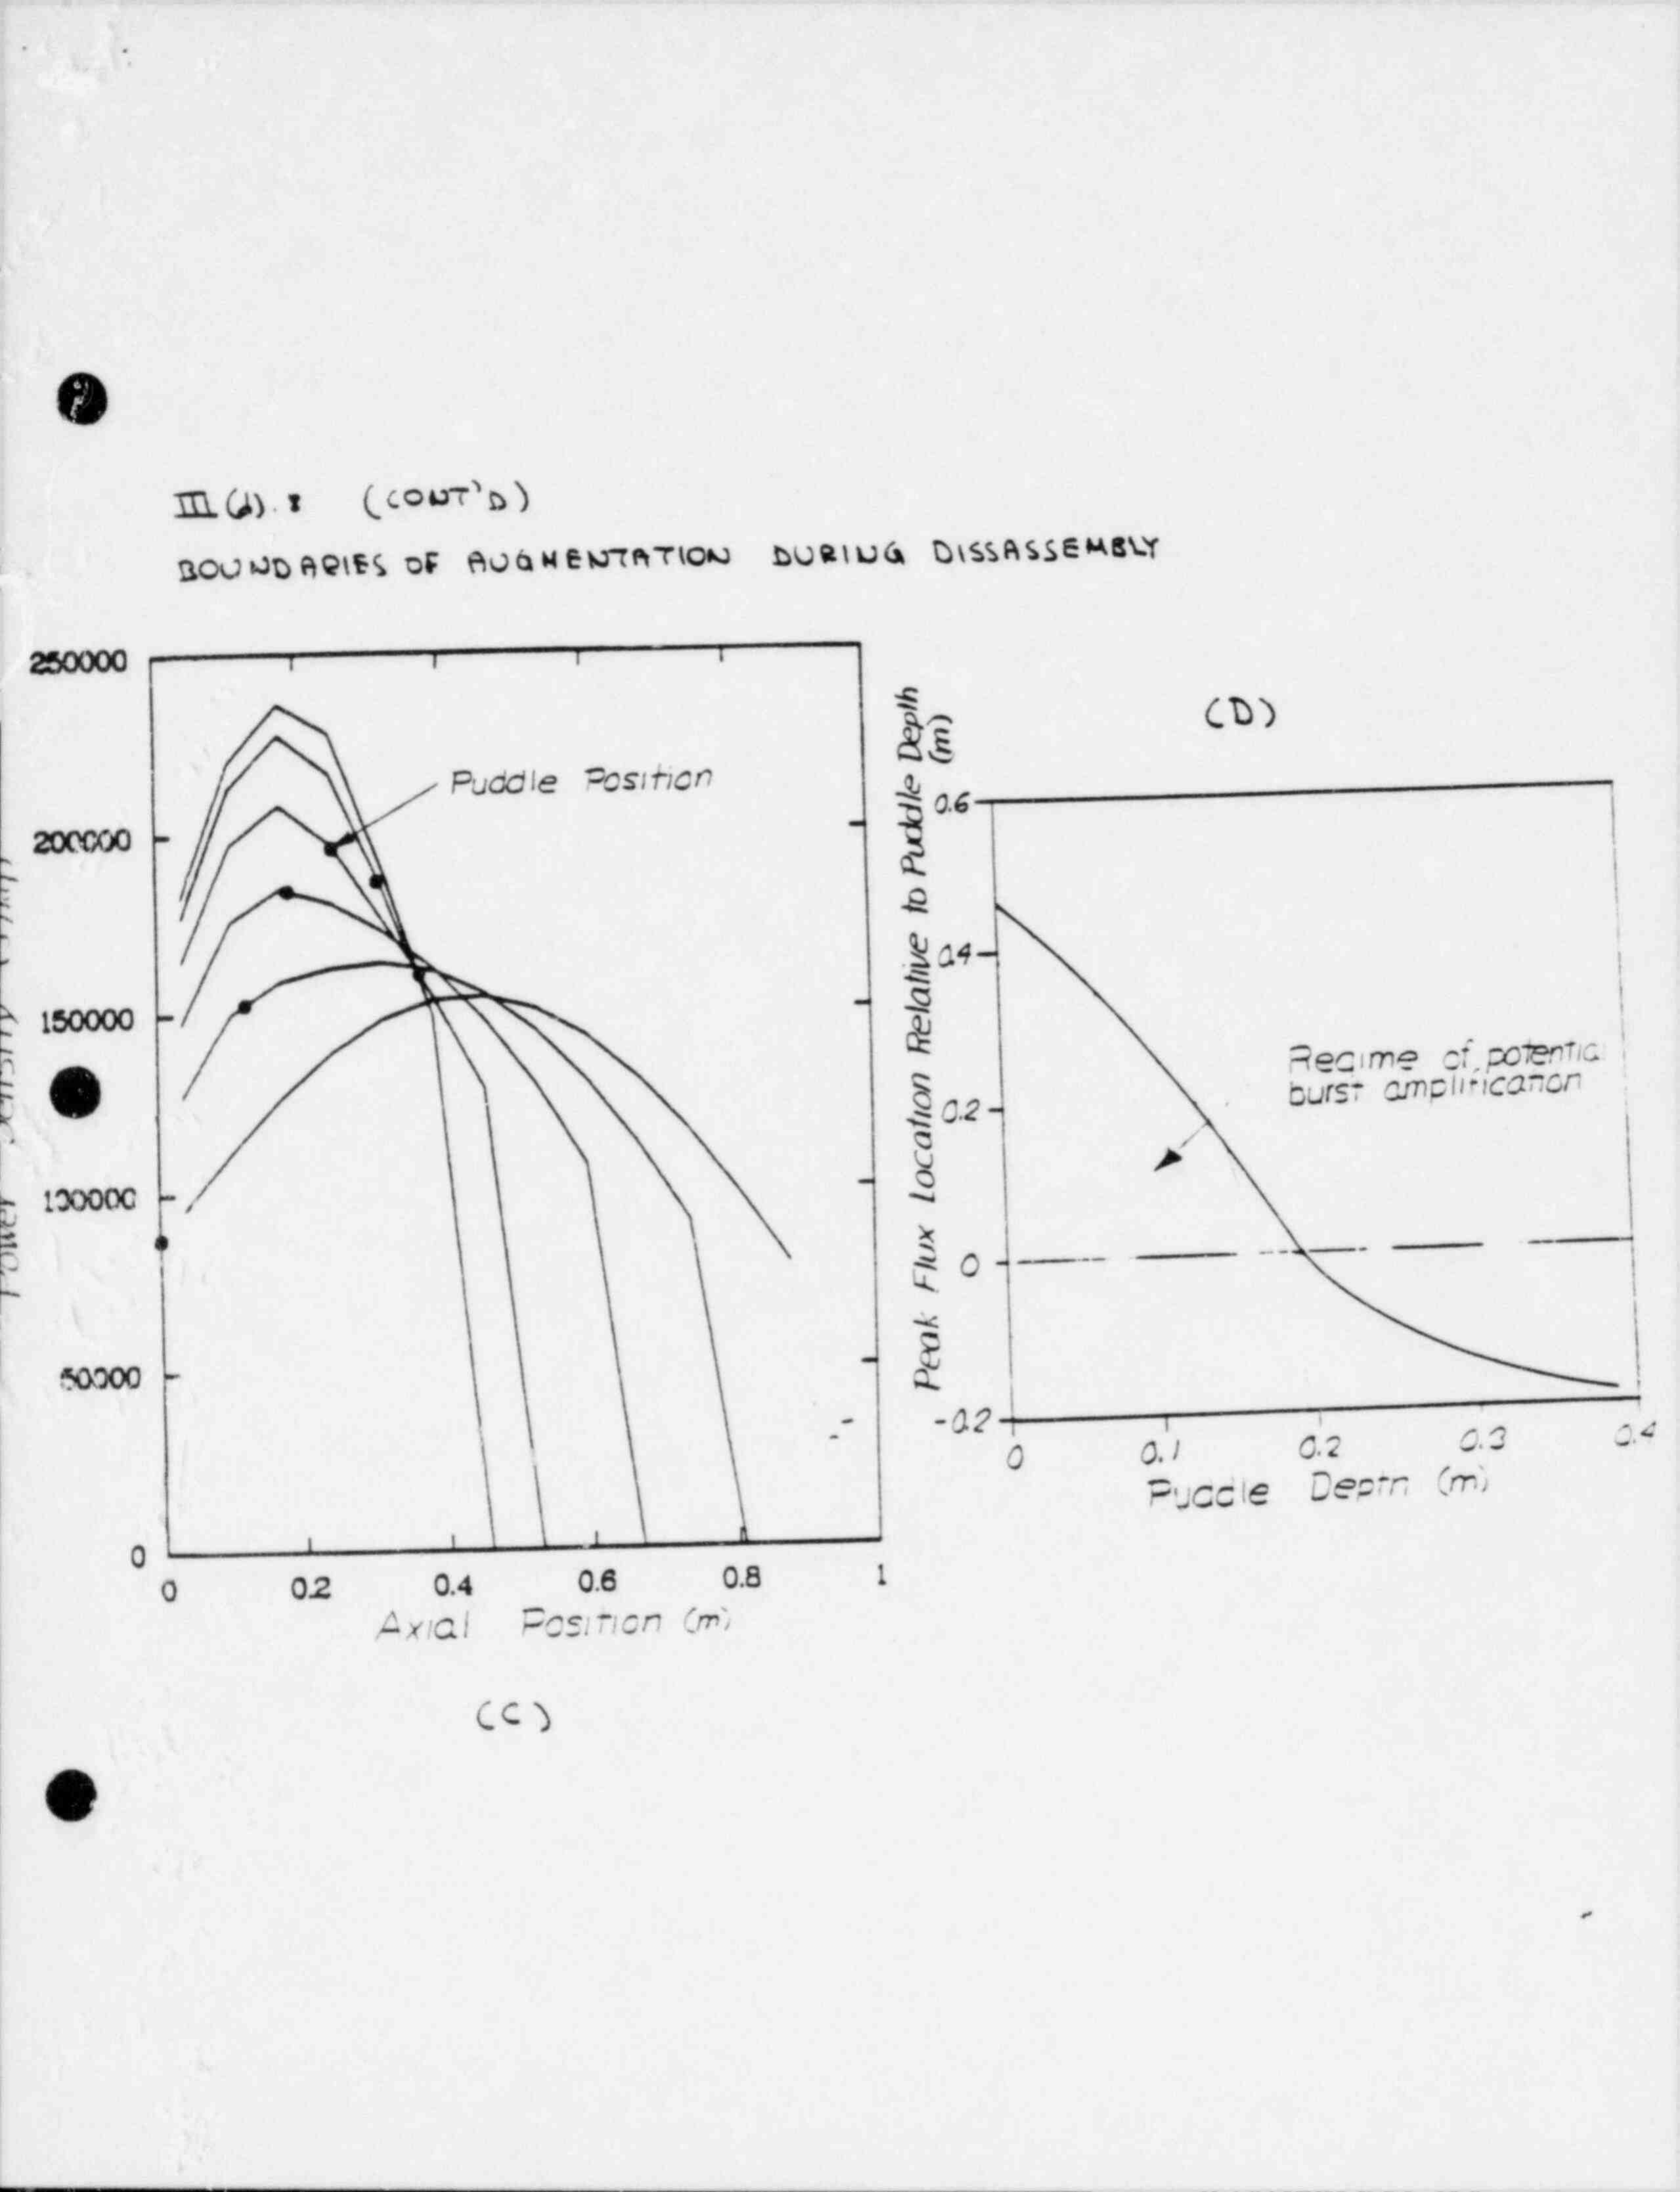 III(d).8 (CONT'D)
BOUNDARIES OF AUGMENTATION DURING DISSASSEMBLY
250000
200000
150000
100000
50000
0
0 0.2 0.4 0.6 0.8 1
Axial Position (m)
Power
Puddle Position
(C)
(D)
Peak Flux Location Relative to Puddle Depth
(m)
0.6
0.4
0.2
0
-0.2
0 0.1 0.2 0.3 0.4
Puddle Depth (m)
Regime of potential
burst amplification